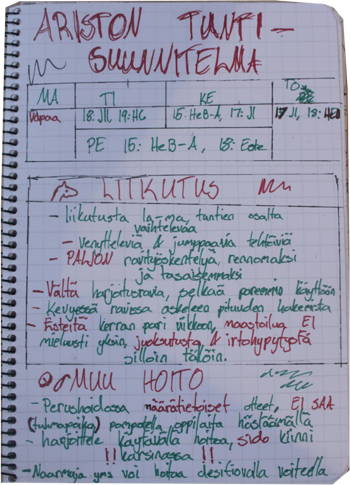 ARISTON TUNTI-
SUUNNITELMA
MA TI KE TO
Vapaa 18: J11, 19: HC 15: HeB-A, 17: J1 17 J1, 18: HEL
PE 15: HeB-A, 18: Este
LIIKUTUS
- liikutusta la-ma, tuntien osalta
vaihtelevaa
- venyttelevää & jumppaavia tehtäviä
- PALJON ravityöskentelyä, rennommaksi
ja tasaisemmaksi
- Vältä harjoitusravia, pelkää paremmin käyttöön
- Kevyessä ravissa askeleen pituuden hakemista
- Esteitä kerran pari viikkoon, maastoilua EI
mieluusti yksin, juoksutusta, & irtohypytystä
silloin tällöin.
MUU HOITO
- Perushoidossa määrätietoiset otteet, EI SAA
(tulmapäikä) pompotella oppilaita höslaamalla
- harjoittele käytävällä hoitoa, sido kiinni
!! karsinassa !!
- Naarmuja yms voi hoitaa desifioivalla voiteella